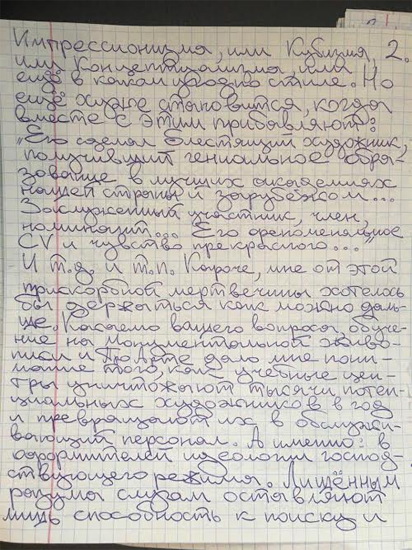 Импрессионизма, или Кубизма, 2.
или Концептуализма, или
ещё в каком угодно стиле. Но
ещё хуже становится, когда
вместе с этим прибавляют:
"Его сделал блестящий художник,
получивший гениальное обра-
зование в лучших академиях
нашей страны и зарубежом...
Заслуженный участник, член,
номинант... Его феноменальное
CV и чувство прекрасного..."
И т.д. и т.п. Короче, мне от этой
прискорбной мертвечины хотелось
бы держаться как можно даль-
ше. Касаемо вашего вопроса, обуче-
ние на монументальной живо-
писи и Про Арте дало мне пони-
мание того, как учебные цен-
тры уничтожают тысячи потен-
циальных художников в год
и превращают их в обслужи-
вающий персонал. А именно: в
оформителей идеологии господ-
ствующего режима. Лишённым
разума слугам оставляют
лишь способность к поиску и